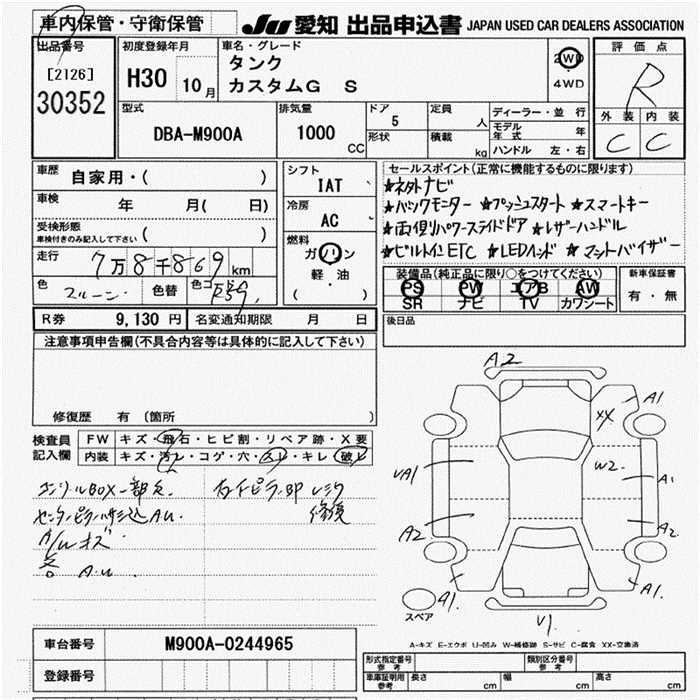 車内保管・守衛保管
JU 愛知 出品申込書 JAPAN USED CAR DEALERS ASSOCIATION
出品番号
[2126]
30352
初度登録年月
H30 10月
車名・グレード
タンク
カスタムG S
2WD
4WD
評価点
R
外装 内装
C C
型式
DBA-M900A
排気量
1000 CC
ドア
5
形状
定員
人
積載
kg
ディーラー・並 行
モデル年式 年
ハンドル 左・右
車歴
自家用・( )
車検
年 月( 日)
受検形態
車検付きのみ記入して下さい ( )
走行
7万8千869km
色
色替
色コード
シフト
IAT
冷房
AC
燃料
ガソリン
軽・油
( )
セールスポイント(正常に機能するものに限ります)
★ネタトナビ
★バックモニター ★プッシュスタート ★スマートキー
★両側パワースライドドア ★レザーハンドル
★ビルトインETC ★LEDヘッド ★マットバイザー
装備品(純正品に限り○をつけてください)
PS PW エアB AW
SR ナビ TV カワシート
新車保証書
有・無
後日品
R券 9,130 円 名変通知期限 月 日
注意事項申告欄(不具合内容等は具体的に記入して下さい)
修復歴 有 (箇所 )
検査員
記入欄
FW キズ・飛石・ヒビ割・リペア跡・X要
内装 キズ・汚レ・コゲ・穴・スレ・キレ・破レ
A2
A1
XX
W2
A1
A2
A2
A1
A1
V1
スペア
A-キズ E-エクボ U-凹み W-補修跡 S-サビ C-腐食 XX-交換済
車台番号 M900A-0244965
登録番号
形式指定番号
参考
類別区分番号
参考
車庫証明用
参考
長さ cm 幅 cm 高さ cm